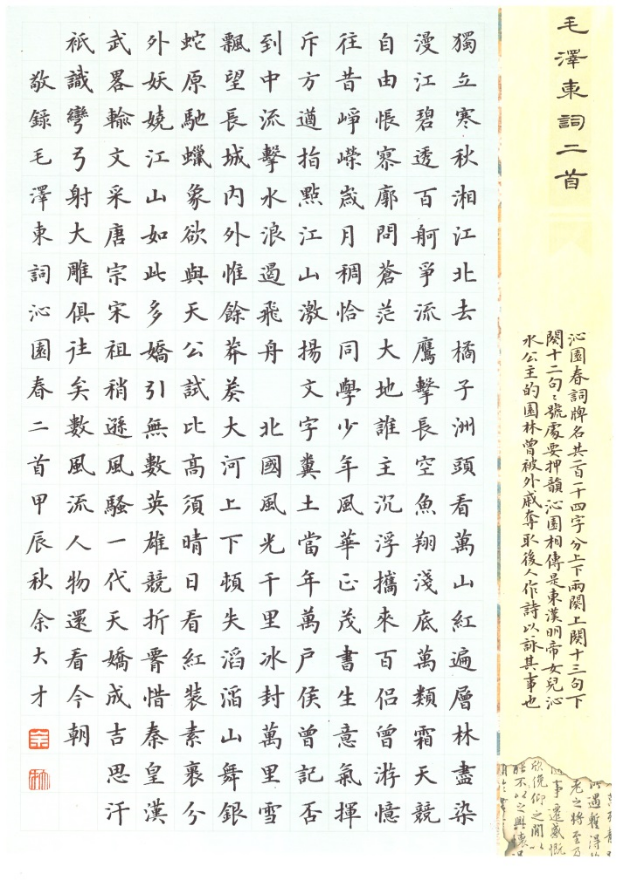 毛澤東詞二首
沁園春詞牌名共一百一十四字分上下兩闋上闋十三句下
闋十二句〻號處要押韻沁園相傳是東漢明帝女兒沁
水公主的園林曾被外戚奪取後人作詩以詠其事也
獨立寒秋湘江北去橘子洲頭看萬山紅遍層林盡染
漫江碧透百舸爭流鷹擊長空魚翔淺底萬類霜天競
自由悵寥廓問蒼茫大地誰主沉浮攜來百侶曾游憶
往昔崢嶸歲月稠恰同學少年風華正茂書生意氣揮
斥方遒指點江山激揚文字糞土當年萬戶侯曾記否
到中流擊水浪遏飛舟 北國風光千里冰封萬里雪
飄望長城內外惟餘莽莽大河上下頓失滔滔山舞銀
蛇原馳蠟象欲與天公試比高須晴日看紅裝素裹分
外妖嬈江山如此多嬌引無數英雄競折腰惜秦皇漢
武畧輸文采唐宗宋祖稍遜風騷一代天嬌成吉思汗
祇識彎弓射大雕俱往矣數風流人物還看今朝
敬錄毛澤東詞沁園春二首甲辰秋余大才
遇暫得
老之將至及
事遷感慨
欣俛仰之間以
能不以之興懷